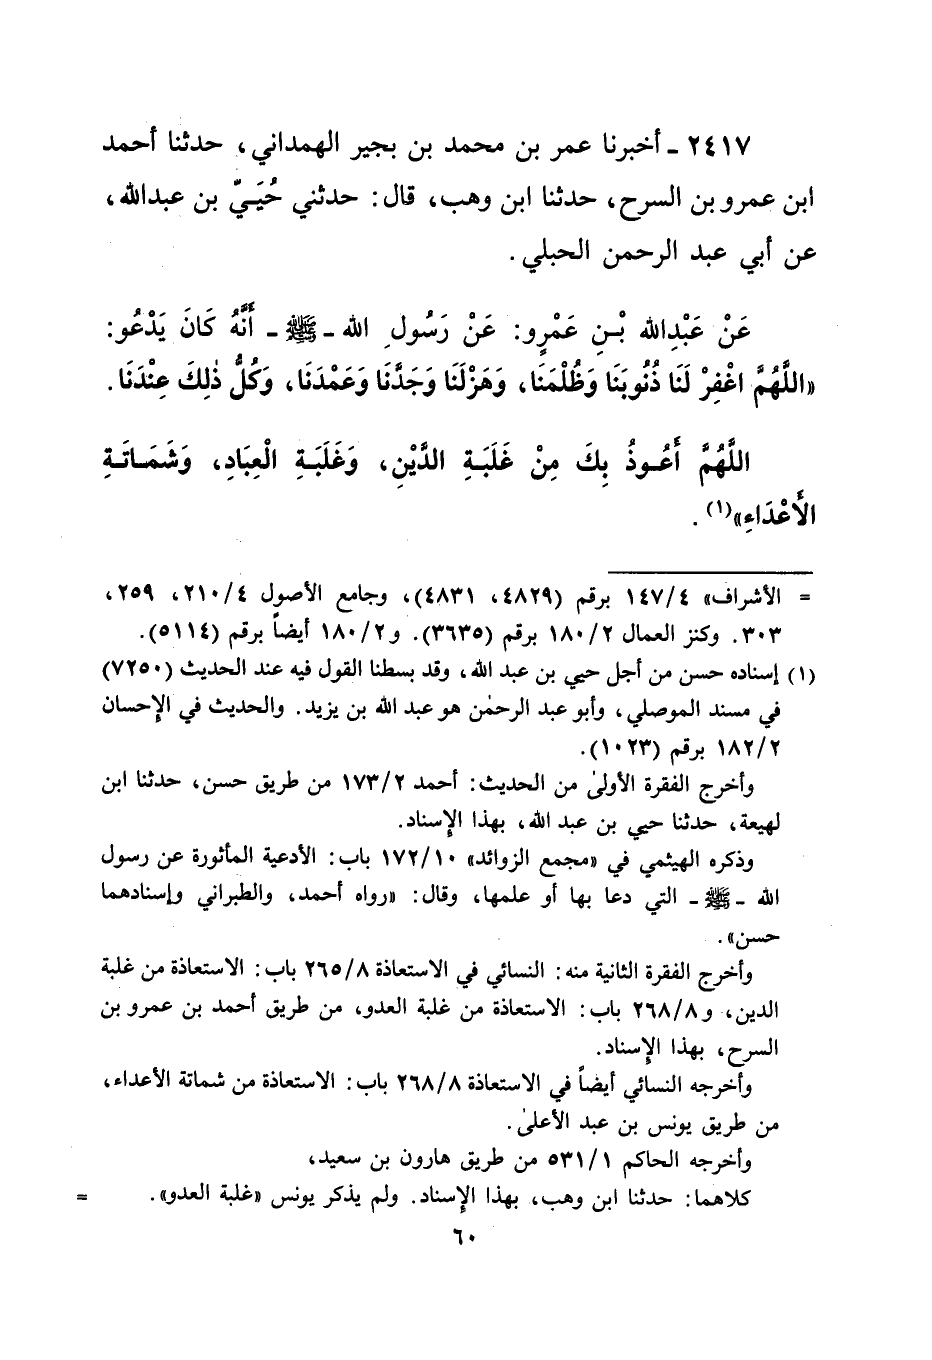 ٢٤١٧ - أخبرنا عمر بن محمد بن بجير الهمداني، حدثنا أحمد
ابن عمرو بن السرح، حدثنا ابن وهب، قال: حدثني حُيَيّ بن عبدالله،
عن أبي عبد الرحمن الحبلي.
عَنْ عَبْدِالله بْـنِ عَمْرٍو: عَنْ رَسُولِ الله - ﷺ - أَنَّهُ كَانَ يَدْعُو:
«اللَّهُمَّ اغْفِرْ لَنَا ذُنُوبَنَا وَظُلْمَنَا، وَهَزْلَنَا وَجَدَّنَا وَعَمْدَنَا، وَكُلُّ ذٰلِكَ عِنْدَنَا.
اللَّهُمَّ أَعُـوذُ بِكَ مِنْ غَلَبَـةِ الدَّيْنِ، وَغَلَبَـةِ الْعِبَادِ، وَشَمَـاتَـةِ
الأَعْدَاءِ»(١).
= الأشراف» ١٤٧/٤ برقم (٤٨٢٩، ٤٨٣١)، وجامع الأصول ٢١٠/٤، ٢٥٩،
٣٠٣. وكنز العمال ١٨٠/٢ برقم (٣٦٣٥). و١٨٠/٢ أيضاً برقم (٥١١٤).
(١) إسناده حسن من أجل حيي بن عبد الله، وقد بسطنا القول فيه عند الحديث (٧٢٥٠)
في مسند الموصلي، وأبو عبد الرحمٰن هو عبد الله بن يزيد. والحديث في الإحسان
١٨٢/٢ برقم (١٠٢٣).
وأخرج الفقرة الأولىٰ من الحديث: أحمد ١٧٣/٢ من طريق حسن، حدثنا ابن
لهيعة، حدثنا حيي بن عبد الله، بهذا الإسناد.
وذكره الهيثمي في «مجمع الزوائد» ١٧٢/١٠ باب: الأدعية المأثورة عن رسول
الله - ﷺ - التي دعا بها أو علمها، وقال: «رواه أحمد، والطبراني وإسنادهما
حسن».
وأخرج الفقرة الثانية منه: النسائي في الاستعاذة ٢٦٥/٨ باب: الاستعاذة من غلبة
الدين، و٢٦٨/٨ باب: الاستعاذة من غلبة العدو، من طريق أحمد بن عمرو بن
السرح، بهذا الإسناد.
وأخرجه النسائي أيضاً في الاستعاذة ٢٦٨/٨ باب: الاستعاذة من شماتة الأعداء،
من طريق يونس بن عبد الأعلىٰ.
وأخرجه الحاكم ٥٣١/١ من طريق هارون بن سعيد،
كلاهما: حدثنا ابن وهب، بهذا الإسناد. ولم يذكر يونس «غلبة العدو». =
٦٠